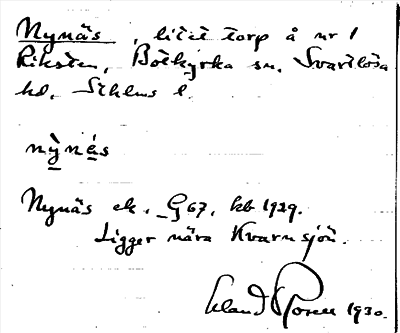 Nynäs, litet torp å nr 1
Riksten, Botkyrka sn, Svartlösa
hd, Sthlms l.
nỳnés
Nynäs ek. G 67, kb 1929.
Ligger nära Kvarnsjön.
Rosen 1930.